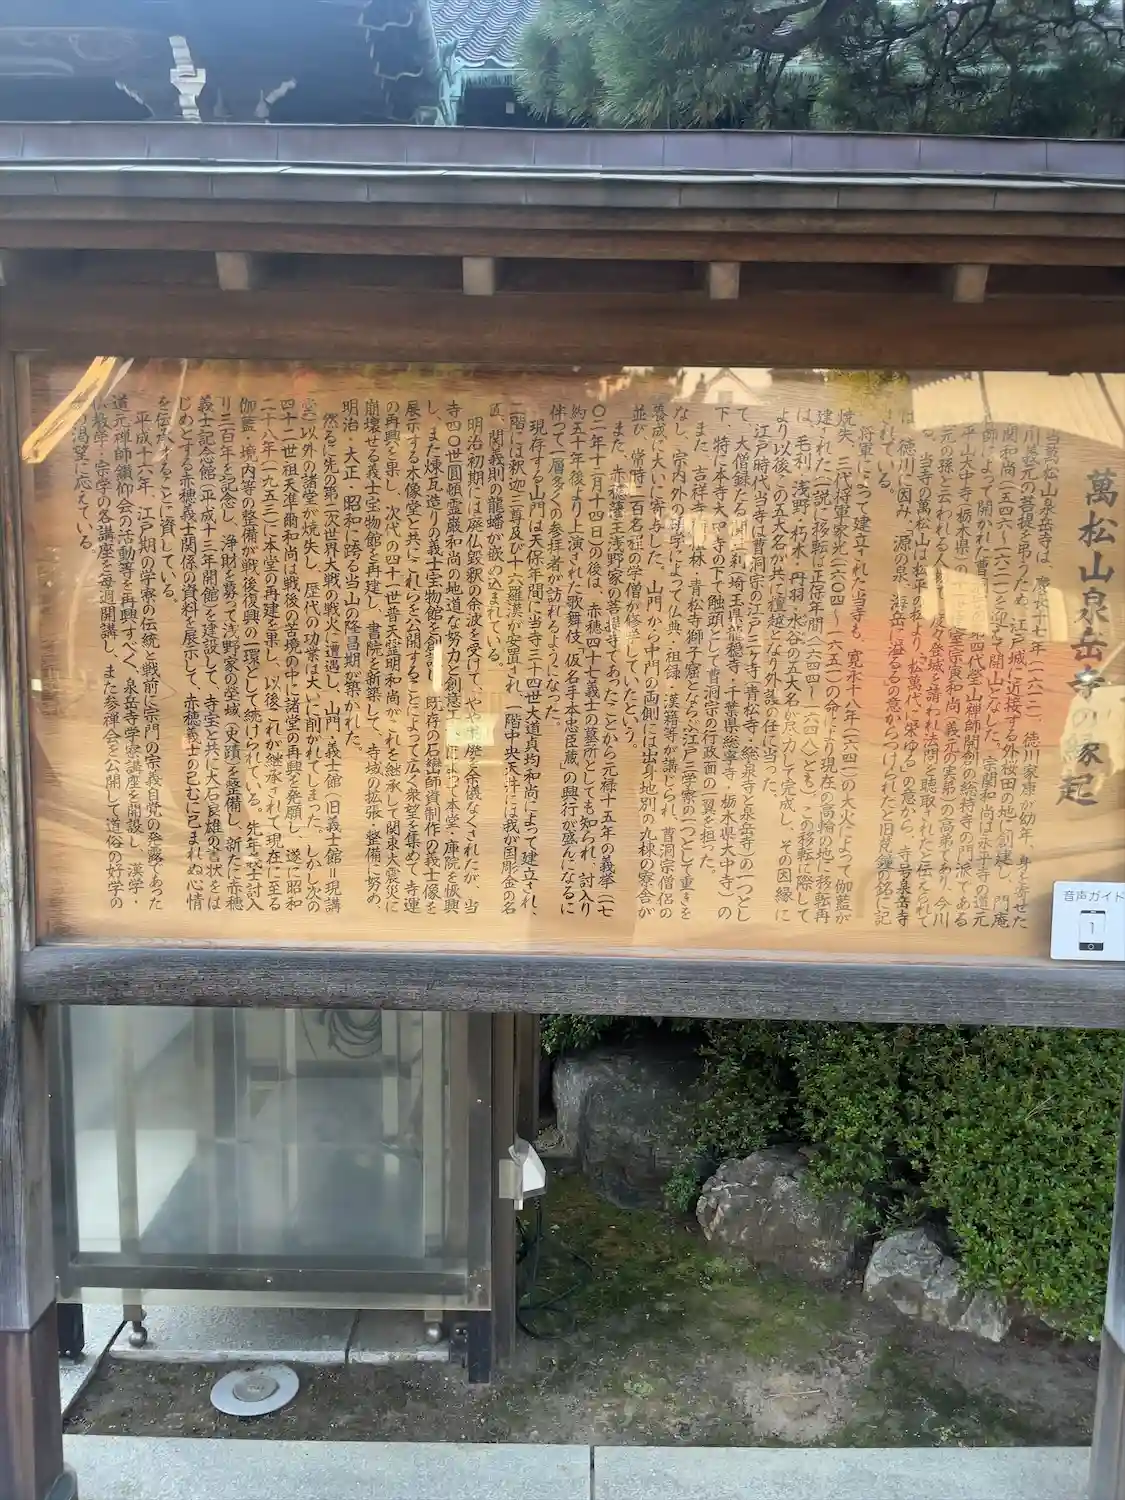 萬松山泉岳寺の縁起
当萬松山泉岳寺は、慶長十七年(一六一二)、徳川家康が幼年、身を寄せた
川義元の菩提を弔うため、江戸城に近接する外桜田の地に創建し、門庵
関和尚(一五四六〜一六二一)を迎えて開山となした。宗関和尚は永平寺の道元
師によって開かれた曹洞 第四代瑩山禅師開創の總持寺の門派である
平山大中寺(栃木県) 室宗寅和尚(義元の実弟)の高弟であり、今川
元の孫と云われる人 度々登城を請われ法問を聴取されたと伝えられて
当寺の萬松山は松平の松より、「松萬代に栄ゆる」の意から、寺号泉岳寺
は、徳川に因み、「源の泉、海岳に溢るる」の意からつけられたと旧梵鐘の銘に記
されている。
将軍によって建立された当寺も、寛永十八年(一六四一)の大火によって伽藍が
焼失、三代将軍家光(一六〇四〜一六五一)の命により現在の高輪の地に移転再
建された(一説に移転は正保年間(一六四四〜一六四八)とも)。この移転に際して
は、毛利・浅野・朽木・丹羽・水谷の五大名が尽力して完成し、その因縁に
より以後、この五大名が共に檀越となり外護の任に当った。
江戸時代当寺は曹洞宗の江戸三ヶ寺(青松寺・総泉寺と泉岳寺)の一つとし
て、大僧録たる関三刹(埼玉県龍穏寺・千葉県総寧寺・栃木県大中寺)の
下、特に本寺大中寺の下で触頭として曹洞宗の行政面の一翼を担った。
また、吉祥寺旃檀林、青松寺獅子窟とならぶ江戸三学寮の一つとして重きを
なし、宗内外の碩学によって仏典・祖録・漢籍等が講じられ、曹洞宗僧侶の
養成に大いに寄与した。山門から中門の両側には出身地別の九棟の寮舎が
並び、常時二百名程の学僧が修学していたという。
また、赤穂藩主浅野家の菩提寺であったことから元禄十五年の義挙(一七
〇二年十二月十四日)の後は、赤穂四十七義士の墓所としても知られ、討入り
約五十年後より上演された歌舞伎「仮名手本忠臣蔵」の興行が盛んになるに
伴って一層多くの参拝者が訪れるようになった。
現存する山門は天保年間に当寺三十四世大道貞均和尚によって建立され、
二階には釈迦三尊及び十六羅漢が安置され、一階中央天井には我が国彫金の名
匠、関義則の龍蟠が嵌め込まれている。
明治初期には廃仏毀釈の余波を受けて、やや半廃を余儀なくされたが、当
寺四〇世圓頓霊巌和尚の地道な努力と創意工 によって本堂・庫院を恢興
し、また煉瓦造りの義士宝物館を創設し、既存の石彎師資制作の義士像を
展示する木像堂と共にこれらを公開することによって広く衆望を集めて、寺運
の再興を果し、次代の四十一世普天霊明和尚がこれを継承して関東大震災に
崩壊せる義士宝物館を再建し、書院を新築して、寺域の拡張、整備に努め、
明治・大正・昭和に跨る当山の隆昌期が築かれた。
然るに先の第二次世界大戦の戦火に遭遇し、山門・義士館(旧義士館=現講
堂)以外の諸堂が焼失し、歴代の功業は大いに削がれてしまった。しかし次の
四十二世祖天準爾和尚は戦後の苦境の中に諸堂の再興を発願し、遂に昭和
二十八年(一九五三)に本堂の再建を果し、以後これが継承されて現在に至る
伽藍・境内等の整備が戦後復興の一環として続けられている。先年義士討入
り三百年を記念し、浄財を募って浅野家の塋域(史蹟)を整備し、新たに赤穂
義士記念館(平成十三年開館)を建設して、寺宝と共に大石良雄の書状をは
じめとする赤穂義士関係の資料を展示して、赤穂義士の已むに已まれぬ心情
を伝承することに資している。
平成十六年、江戸期の学寮の伝統と戦前に宗門の宗義自覚の発露であった
道元禅師鑽仰会の活動等を再興すべく、泉岳寺学寮講座を開設し、漢学・
仏教学・宗学の各講座を毎週開講し、また参禅会を公開して道俗の好学の
渇望に応えている。
音声ガイド
1